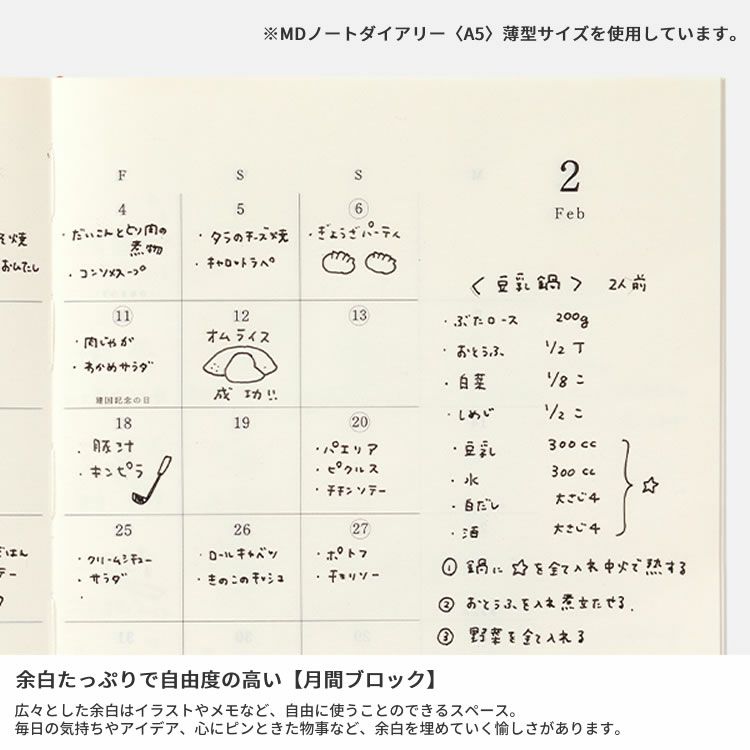 ※MDノートダイアリー〈A5〉薄型サイズを使用しています。
F
S
S
2
Feb
4
5
6
・だいこんとビン肉の
煮物
・コンソメスープ
・タラのチーズ焼
・キャロットラペ
・ぎょうざパーティ
焼
おひたし
〈豆乳鍋〉 2人前
・ぶたロース 200g
・おとうふ 1/2 丁
・白菜 1/8 こ
・しめじ 1/2 こ
・豆乳 300cc
・水 300cc
・白だし 大さじ4
・酒 大さじ4
☆
① 鍋に☆を全て入れ中火で熱する
② おとうふを入れ煮立たせる.
③ 野菜を全て入れる
11
12
13
・肉じゃが
・わかめサラダ
建国記念の日
オムライス
成功!!
18
19
20
・豚汁
・キンピラ
・パエリア
・ピクルス
・チキンソテー
25
26
27
・クリームシチュー
・サラダ
・
・ロールキャベツ
・きのこのキッシュ
・ポトフ
・チョリソー
ごはん
テー
余白たっぷりで自由度の高い【月間ブロック】
広々とした余白はイラストやメモなど、自由に使うことのできるスペース。
毎日の気持ちやアイデア、心にピンときた物事など、余白を埋めていく愉しさがあります。